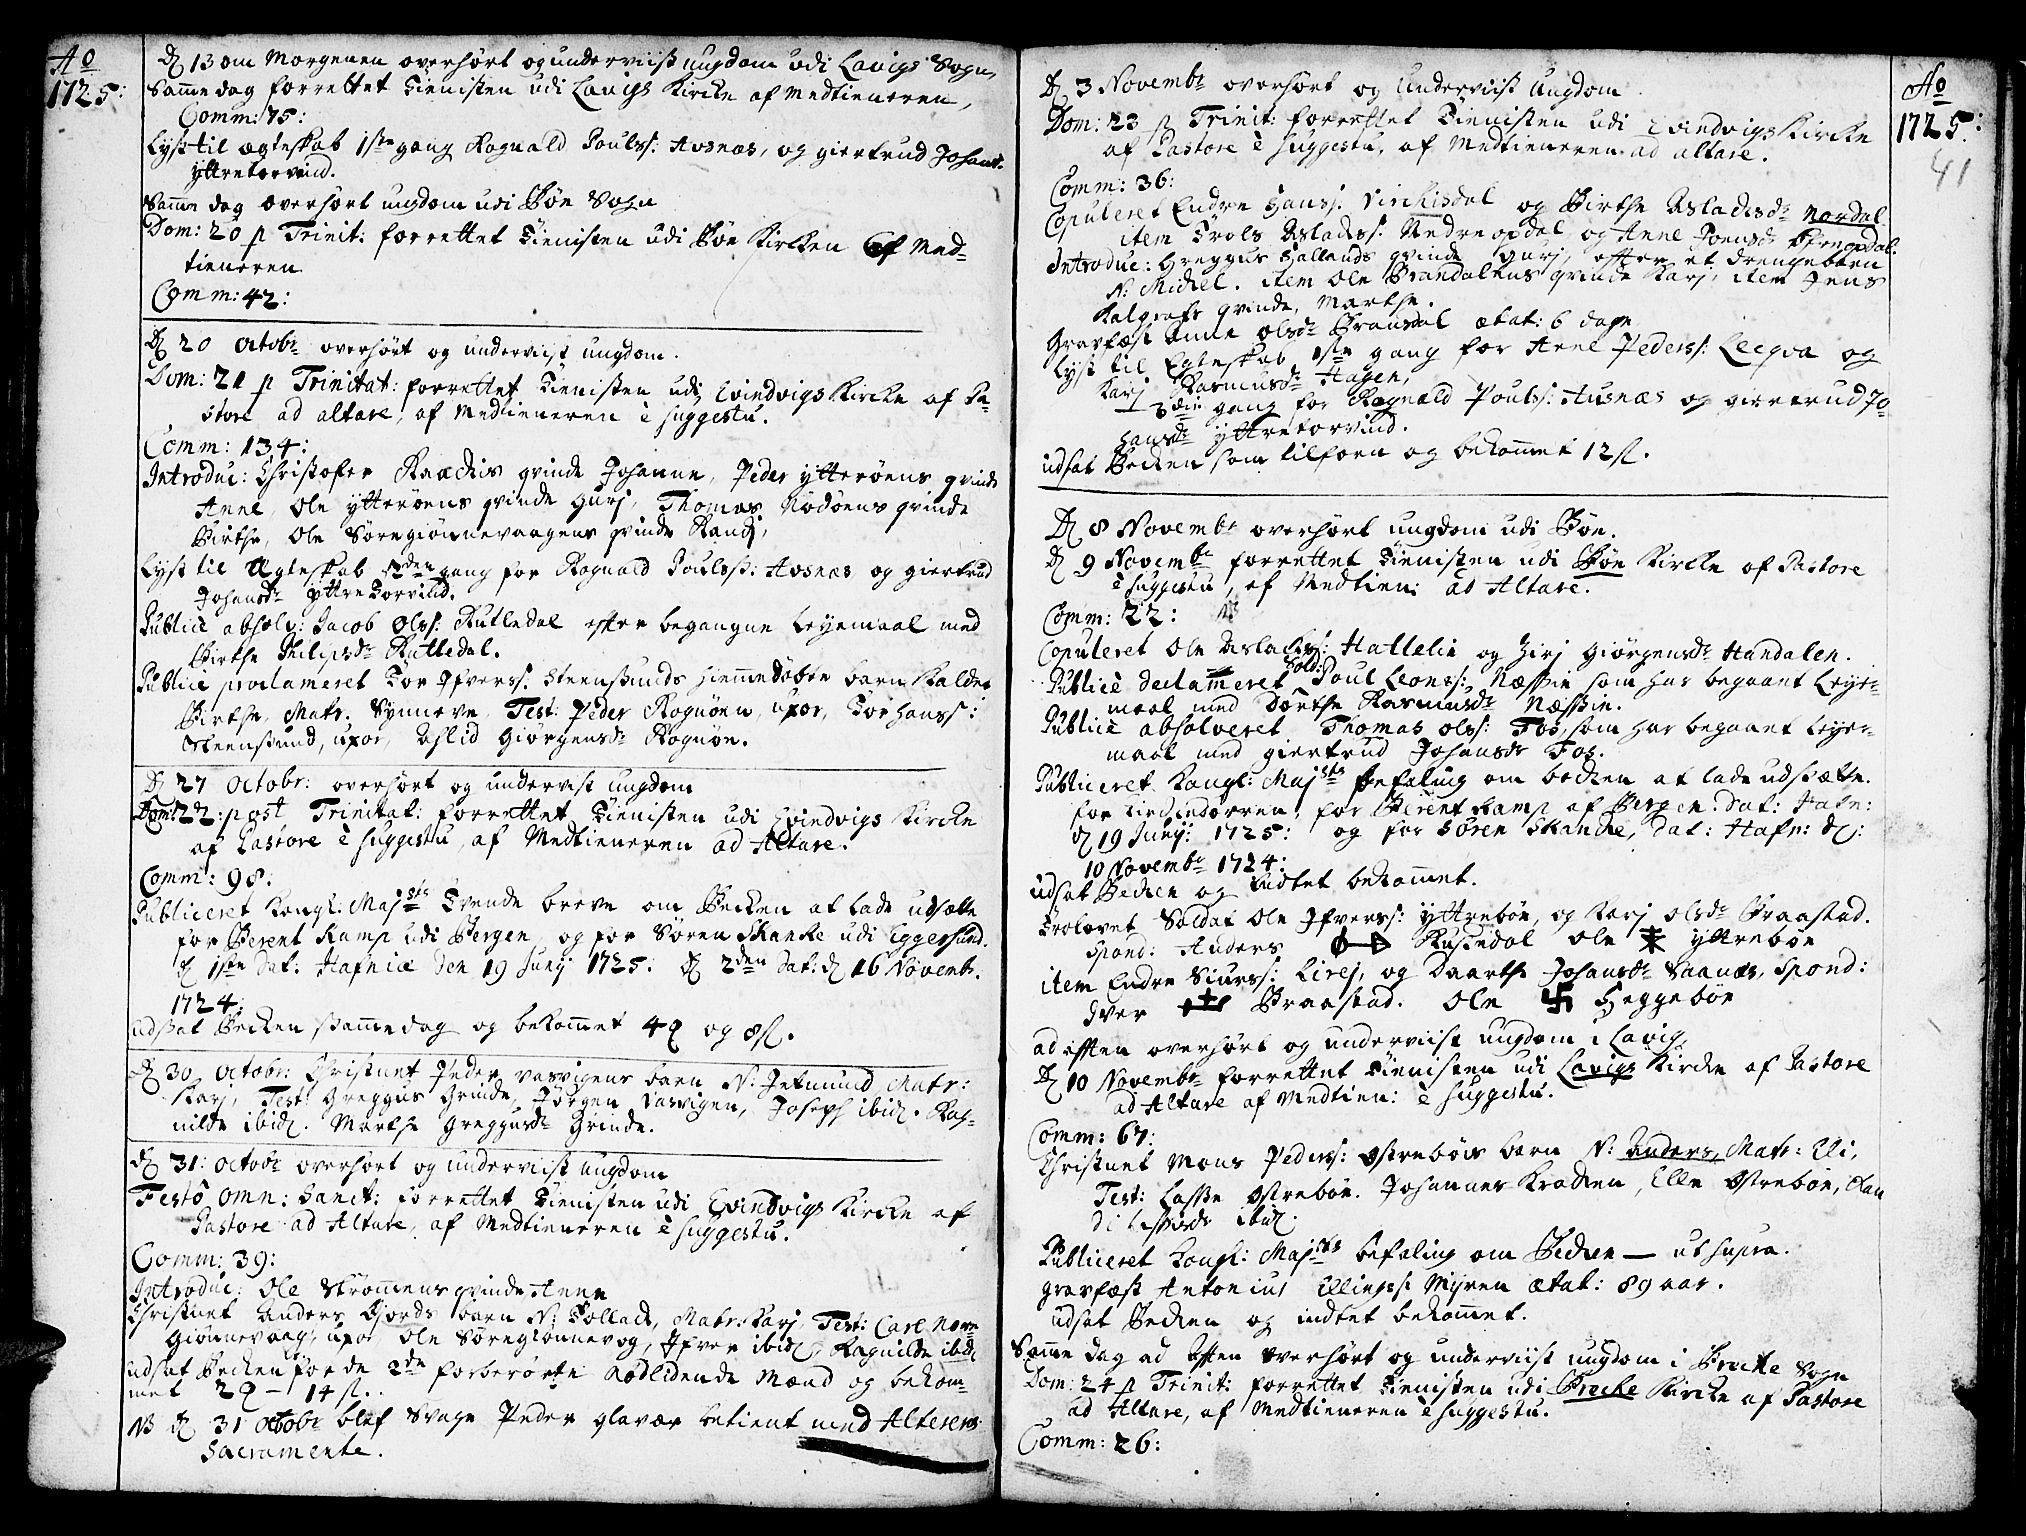 Ao
1725:
D 13 om Morgenen overhørt og underviist ungdom udi Lavigs Sogn,
Samme dag forrettet Tienisten udi Lavigs Kircke af Medtieneren,
Comm: 75:
Lyst til ægteskab 1ste gang Rognald Poulss: Avsnæs, og giertrud Johans:
yttretorvind.
Samme dag overhørt ungdom udi Bøe Sogn
Dom: 20 p Trinit: forrettet Tienisten udi Bøe Kircken af Med-
tieneren
Comm: 42:
D 20 Octobr overhørt og underviist ungdom.
Dom: 21 p Trinitat: forrettet Tienisten udi Evindvigs Kircke af Pa-
store ad altare, af Medtieneren è suggestu.
Comm: 134:
Introduc: Christofer Raadiis qvinde Johanne, Peder ytterøens qvinde
Anne, Ole ytterøens qvinde Gurj, Thomas Nødøens qvinde
Birthe, Ole Søregiønnevaagens qvinde Randj,
Lyst til Ægteskab 2den gang for Rognald Poulss: Avsnæs og giertrud
Johansdr yttre Torvind.
Publicè absolv: Jacob Olss: Rutledal efter begangne Leyemaal med
Birthe Philipsdr Rutledal.
Publicè proclameret Tor Ifverss: Steensunds hiemmedøbte barn kaldet
Birthe, Matr. Synneve, Test: Peder Rognøen, uxor, Tor hanss:
Steensund, uxor, Aslid Giørgensdr Rognøe.
D 27 Octobr: overhørt og underviist ungdom
Dom: 22: post Trinitat: forrettet Tienisten udi Evindvigs Kircke
af Pastore è suggestu, af Medtieneren ad Altare.
Comm: 98:
Publiceret Kongl: Majsts Tvende breve om Becken at lade udsætte
for Berent Kamp udi Bergen, og for Søren Skanke udi Eggersund.
D 1ste dat: Hafniæ den 19 Junij 1725: D 2den dat: D 16 Novembr.
1724:
udsat Becken samme dag og bekommet 4 og 8 s.
D 30 Octobr: Christnet Peder vasvigens barn N: Jetmund Matr:
Karj, Test: Greggus Grinde, Jørgen vasvigen, Joseph ibid. Rag-
nilde ibid. Marthe Greggusdr Grinde.
D 31: Octobr overhørt og underviist ungdom
Festo omn: Sanct: forrettet Tienisten udi Evindvigs Kircke af
Pastore ad Altare, af Medtieneren è suggestu.
Comm: 39:
Introduc: Ole Strømmens qvinde Anne
Christnet Anders Fiords barn N: Tollack, Matr: Karj, Test: Carl Nore
Giønnevaag, uxor, Ole Søregiønnevog, Ifver ibid, Ragnilde ibid
udsat Becken for de 2de forberørte Nødlidende Mænd og bekom-
met 2 – 14 s.
NB D 31 Octobr blef Svage Peder glavær betient med Alterens
Sacramente.
Ao
1725:
41
D 3 Novembr overhørt og Underviist Ungdom.
Dom: 23 p Trinit: forrettet Tienisten udi Evindvigs Kircke
af Pastore è suggestu, af Medtieneren ad altare.
Comm: 36:
Copuleret Endre Hanss: Virkisdal og Birthe Asladsdr Nordal
item Trols Asladss: Nedreopdal og Anne Joensdr Øfreopdal.
Introduc: Greggus Hallands qvinde Gurj, efter et drengebarn
N: Michel. item Ole Brandalens qvinde Karj, item Jens
Kalgrafs qvinde, Marthe.
Gravfæst Anne Olsdr Brandal ætat: 6 dage
Lyst til Egteskab 1ste gang for Arne Pederss: Leeqva og
Karj Rasmusdr Hagen,
3die gang for Rognald Poulss: Ausnæs og giertrud Jo-
hansdr yttretorvind.
udsat Becken som tilforn og bekommet 12 s.
D 8 Novembr overhørt ungdom udi Bøe.
D 9 Novembr forrettet Tienisten udi Bøe Kircke af Pastore
è suggestu, af Medtien: ad Altare.
Comm: 22:
Copuleret Ole Aslachss: Hallelie og Zirj Giørgensdr Handalen.
Publicè declameret Sold: Poul Leonss: Næssie som har begaaet Leye-
maal med Dorthe Rasmusdr Næssie.
Publicè absolveret Thomas Olss: Fos, som har begaaet Leyer-
maal med giertrud Johansdr Fos.
Publiceret Kongl: Majsts Befaling om becken at lade udsætte
for kirckedørren, for Berent Kamp af Bergen. dat: Hafn:
D 19 Junij: 1725: og for Søren Skancke, dat: Hafn: D:
10 Novembr 1724:
udsat Becken og Indtet bekommet.
Trolovet Soldat Ole Ifverss: Yttrebøe, og Karj Olsdr Braastad.
Spond: Anders Rusedal Ole yttrebøe
item Endre Siurss: Lirej, og Daarthe Johansdr Vaanæs, Spond:
Iver Braastad. Ole 卐 Heggebøe
ad aften overhørt og underviist ungdom i Lavig,
D 10 Novembr forrettet Tienisten udi Lavigs Kircke af Pastore
ad Altare af Medtien: è suggestu.
Comm: 67:
Christnet Mons Pederss: Østrebøis barn N: Anders, Matr: Eli,
Test: Lasse Østrebøe. Johannes Kracken, Elle Østrebøe,
ibid.
Publiceret Kongl: Majsts befaling om Becken — ut supra.
gravfæst Antonius Ellingss: Myren ætat: 89 aar.
udsat Becken og indtet bekommet.
Samme dag ad Aften overhørt og underviist ungdom i Brecke Sogn
Dom: 24 p Trinit: forrettet Tienisten udi Brecke Kircke af Pastore
ad Altare, af Medtieneren è suggestu.
Comm: 26: